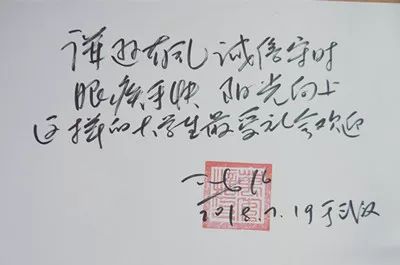 谦逊有礼 诚信守时
眼疾手快 阳光向上
这样的大学生最受社会欢迎
2018.7.19 于武汉